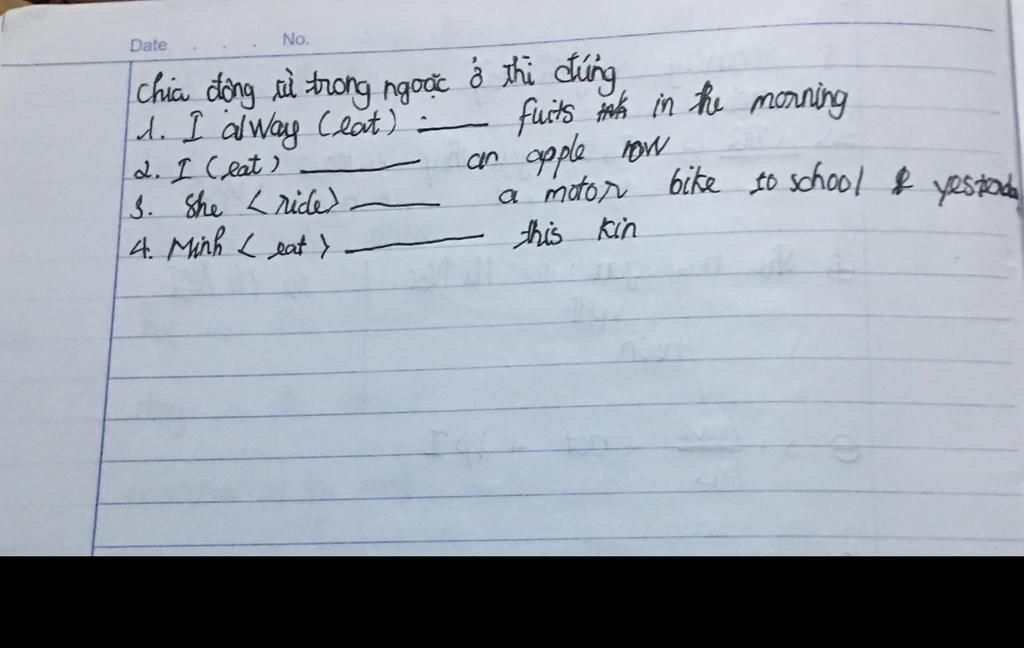 Date . . . No.
Chia động từ trong ngoặc ở thì đúng
1. I alway (eat) : ____ fuits in the morning
2. I (eat) ____ an apple now
3. She <ride> ____ a motor bike to school yesterda
4. Minh < eat > ____ this kin